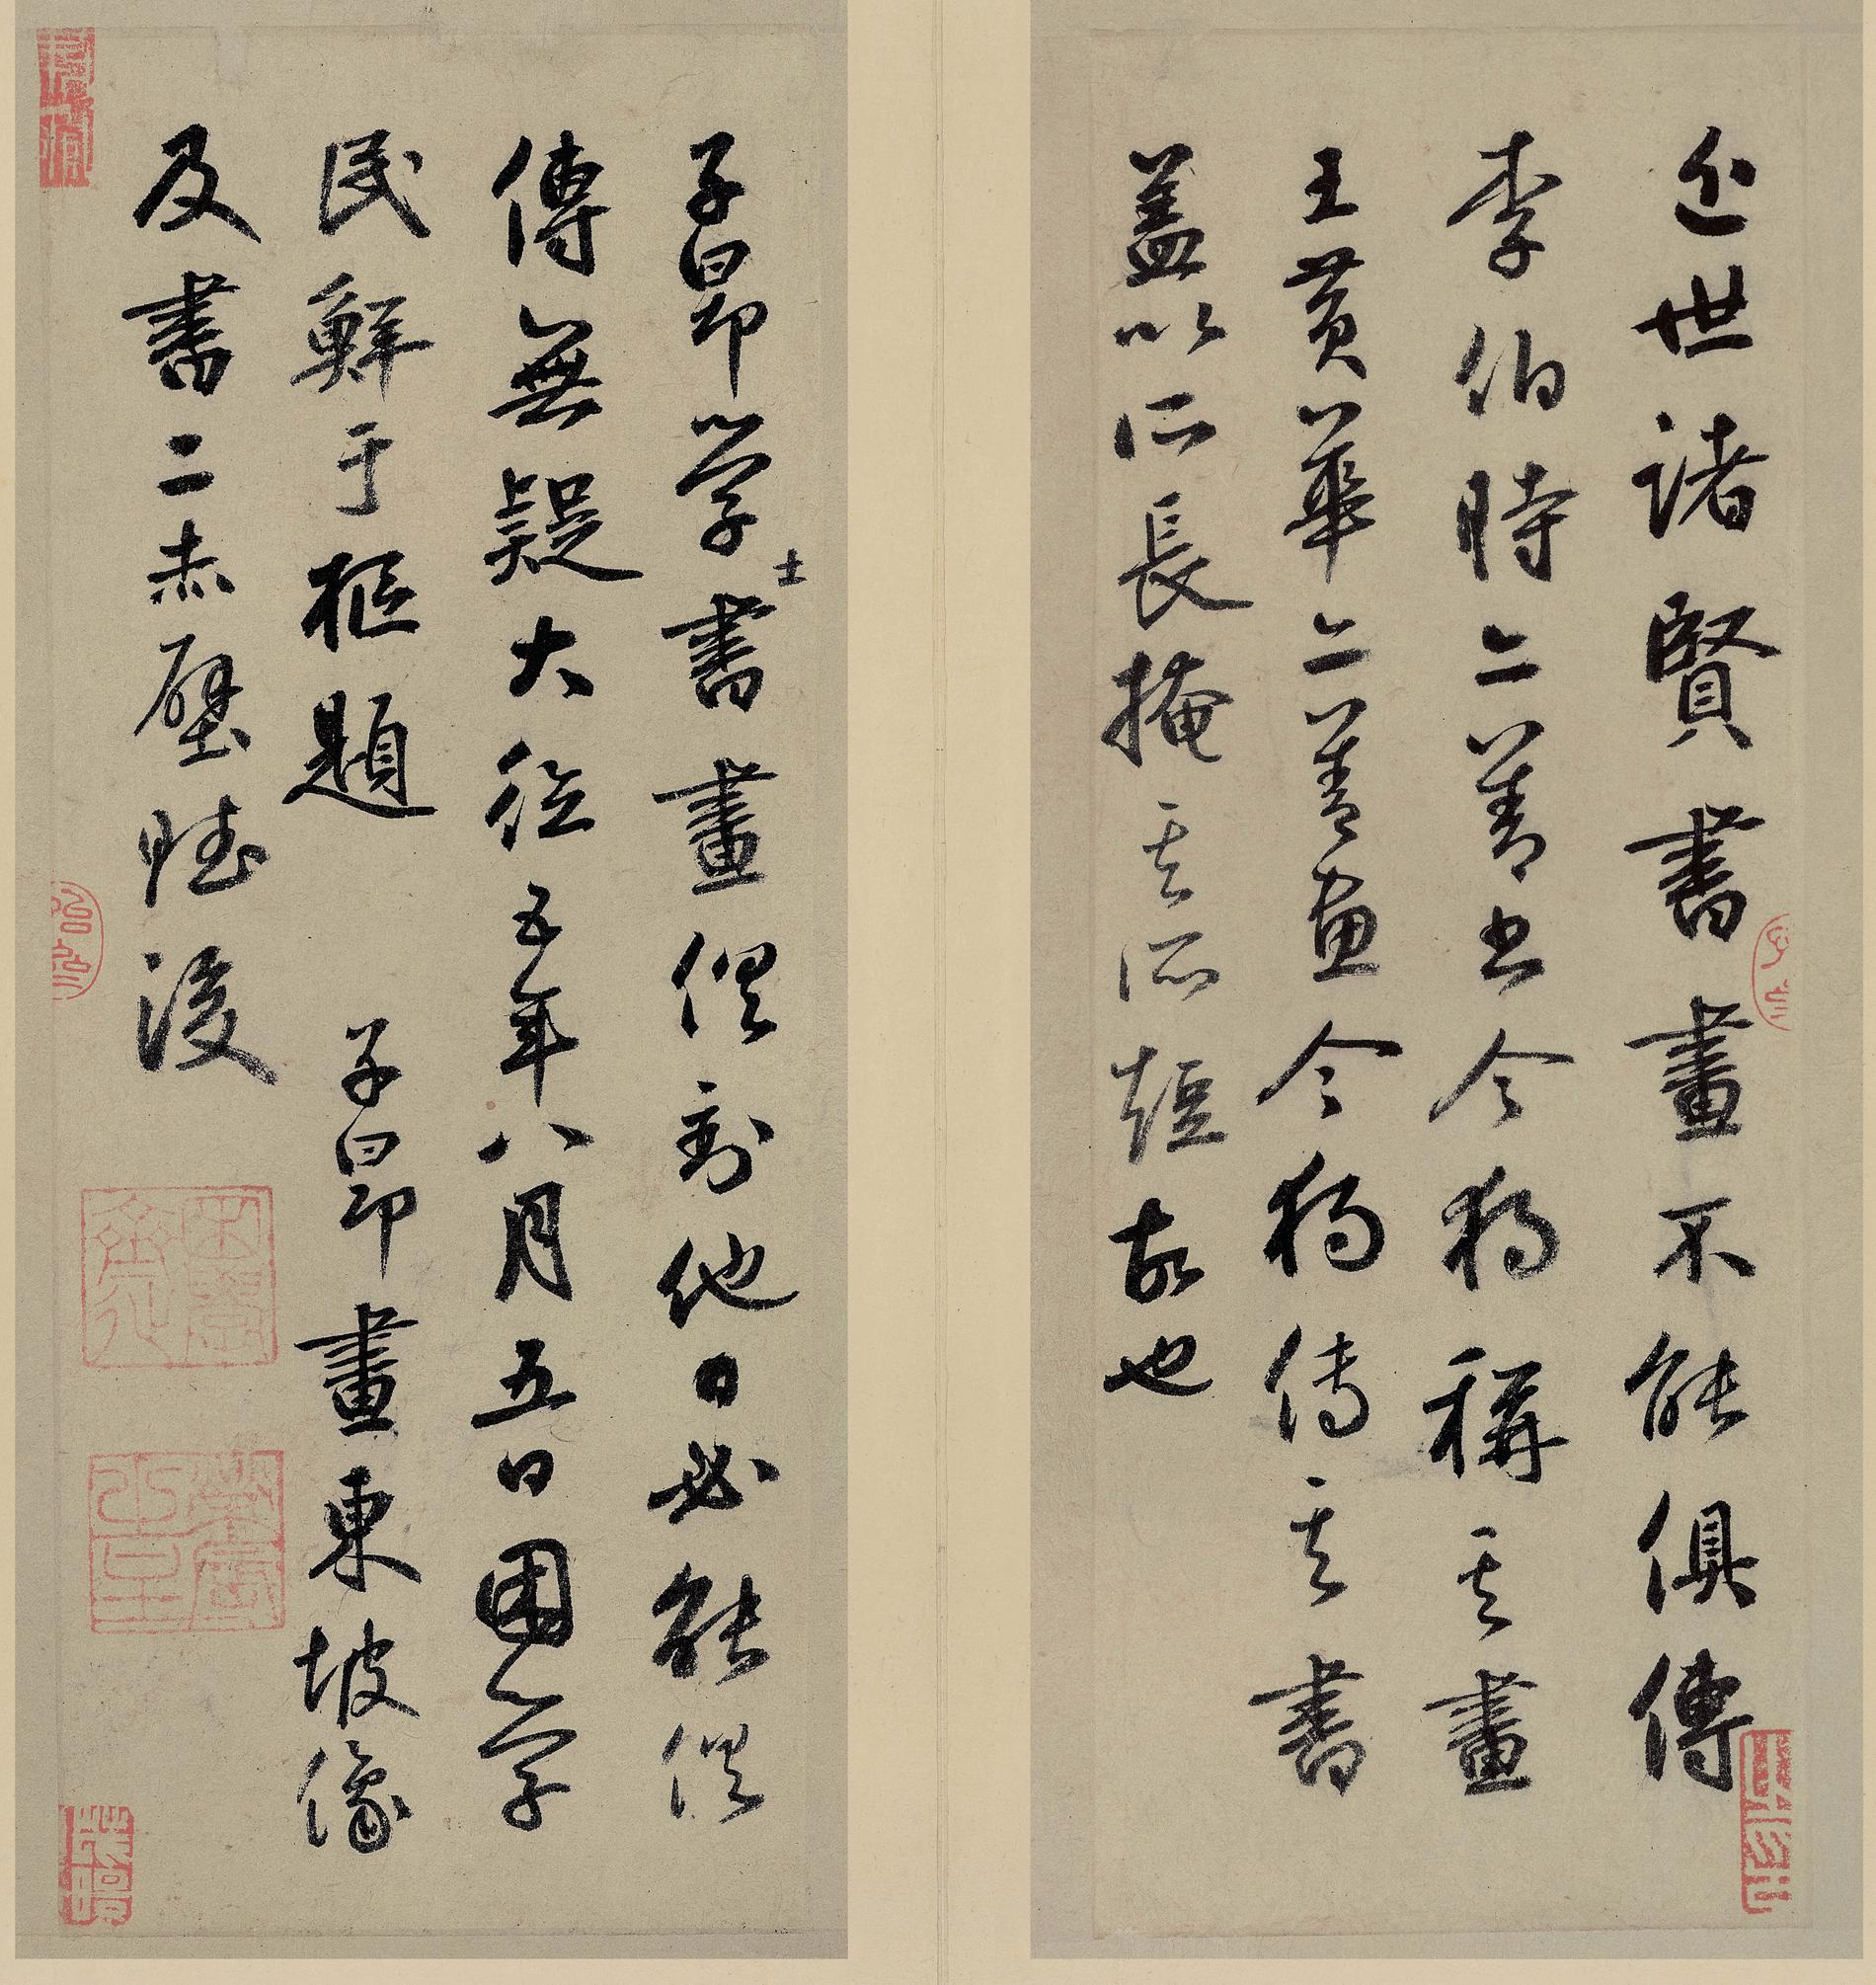 近世諸賢書畫不能俱傳
李伯時二善書今獨稱其畫
王黃華二善畫今獨傳其書
蓋以所長掩其所短故也
子昂學士書畫俱到他日必能俱
傳無疑大德五年八月五日困學
民鮮于樞題 子昂畫東坡像
及書二赤壁賦後